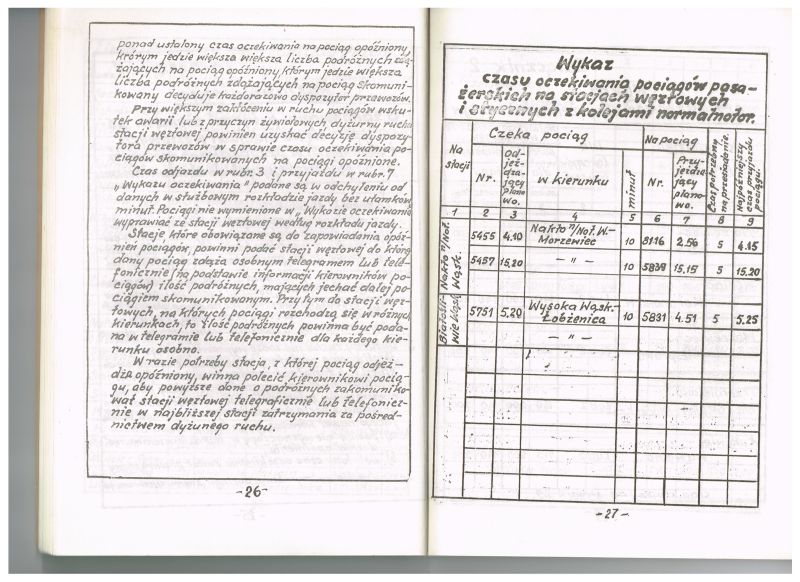 ponad ustalony czas oczekiwania na pociąg opóźniony,
którym jedzie większa większa liczba podróżnych zdą-
żających na pociąg opóźniony, którym jedzie większa
liczba podróżnych zdążających na pociąg skomuni-
kowany decyduje każdorazowo dyspozytor przewozów.
Przy większym zakłóceniu w ruchu pociągów wsku-
tek awarii lub z przyczyn żywiołowych, dyżurny ruchu
stacji węzłowej powinien uzyskać decyzję dyspozy-
tora przewozów w sprawie czasu oczekiwania po-
ciągów skomunikowanych na pociągi opóźnione.
Czas odjazdu w rubr. 3 i przyjazdu w rubr. 7
„Wykazu oczekiwania" podane są w odchyleniu od
danych w służbowym rozkładzie jazdy bez ułamków
minut. Pociągi nie wymienione w „Wykazie oczekiwania
wyprawiać ze stacji węzłowej według rozkładu jazdy.
Stacje, które obowiązane są do zapowiadania opóź-
nień pociągów, powinni podać stacji węzłowej do której
dany pociąg zdąża osobnym telegramem lub tele-
fonicznie (na podstawie informacji kierowników po-
ciągów) ilość podróżnych, mających jechać dalej po-
ciągiem skomunikowanym. Przy tym do stacji węz-
łowych, na których pociągi rozchodzą się w różnych
kierunkach, to ilość podróżnych powinna być poda-
na w telegramie lub telefonicznie dla każdego kie-
runku osobno.
W razie potrzeby stacja, z której pociąg odjeż-
dża opóźniony, winna polecić kierownikowi pocią-
gu, aby powyższe dane o podróżnych zakomuniko-
wał stacji węzłowej telegraficznie lub telefonicz-
nie w najbliższej stacji zatrzymania za pośred-
nictwem dyżunego ruchu.
-26-
Wykaz
czasu oczekiwania pociągów pasa-
żerskich na stacjach węzłowych
i stycznych z kolejami normalnotor.
Na stacji
Czeka pociąg
Na pociąg
Czas potrzebny na przesiadanie.
Najpóźniejszy czas przyjazdu pociągu.
Nr.
Odjeżdzający plano wo.
w kierunku
minut
Nr.
Przyjeżdzający planowo.
1 2 3 4 5 6 7 8 9
Nakło n/Not. Wąsk.
5455 4.10 Nakło n/Not. W.-
Morzewiec 10 8116 2.56 5 4.15
5457 15.20 — " — 10 5839 15.15 5 15.20
Białośliwie Wąsk.
5751 5.20 Wysoka Wąsk.-
Łobżenica 10 5831 4.51 5 5.25
— " —
-27-